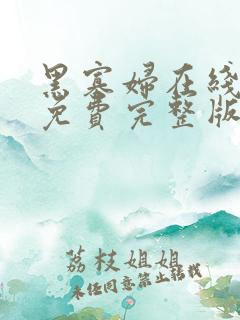 黑寡婦在綫
免費完整版
荔枝姐姐
未经同意禁止转载